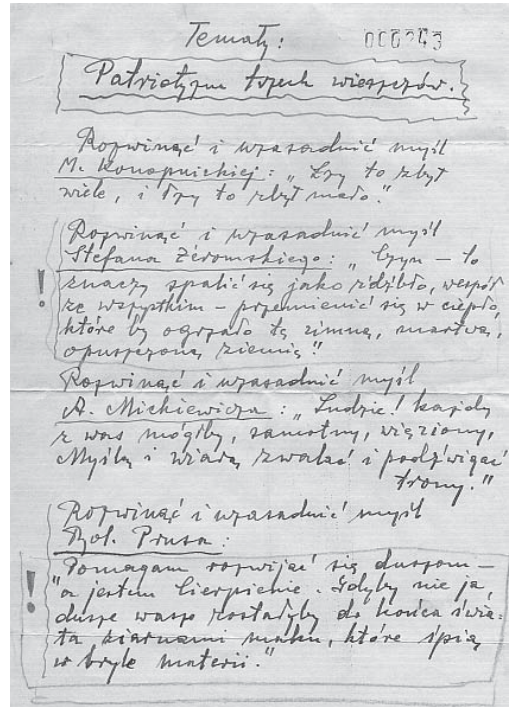 Tematy: 006243
Patriotyzm trzech wieszczów.
Rozwinąć i uzasadnić myśl
M. Konopnickiej: „Łzy to zbyt
wiele, i łzy to zbyt mało."
Rozwinąć i uzasadnić myśl
Stefana Żeromskiego: „Czyn – to
! znaczy spalić się jako źdźbło, wespół
ze wszystkim – przemienić się w ciepło,
które by ogrzało tę zimną, martwą,
opuszczoną ziemię."
Rozwinąć i uzasadnić myśl
A. Mickiewicza: „Ludzie! każdy
z was mógłby, samotny, więziony,
Myślą i wiarą zwalać i podźwigać
trony."
Rozwinąć i uzasadnić myśl
Bol. Prusa:
Pomagam rozwijać się duszom –
! "a jestem Cierpienie. Gdyby nie ja,
dusze wasze zostałyby do końca świa-
ta ziarnami maku, które śpią
w bryle materii."